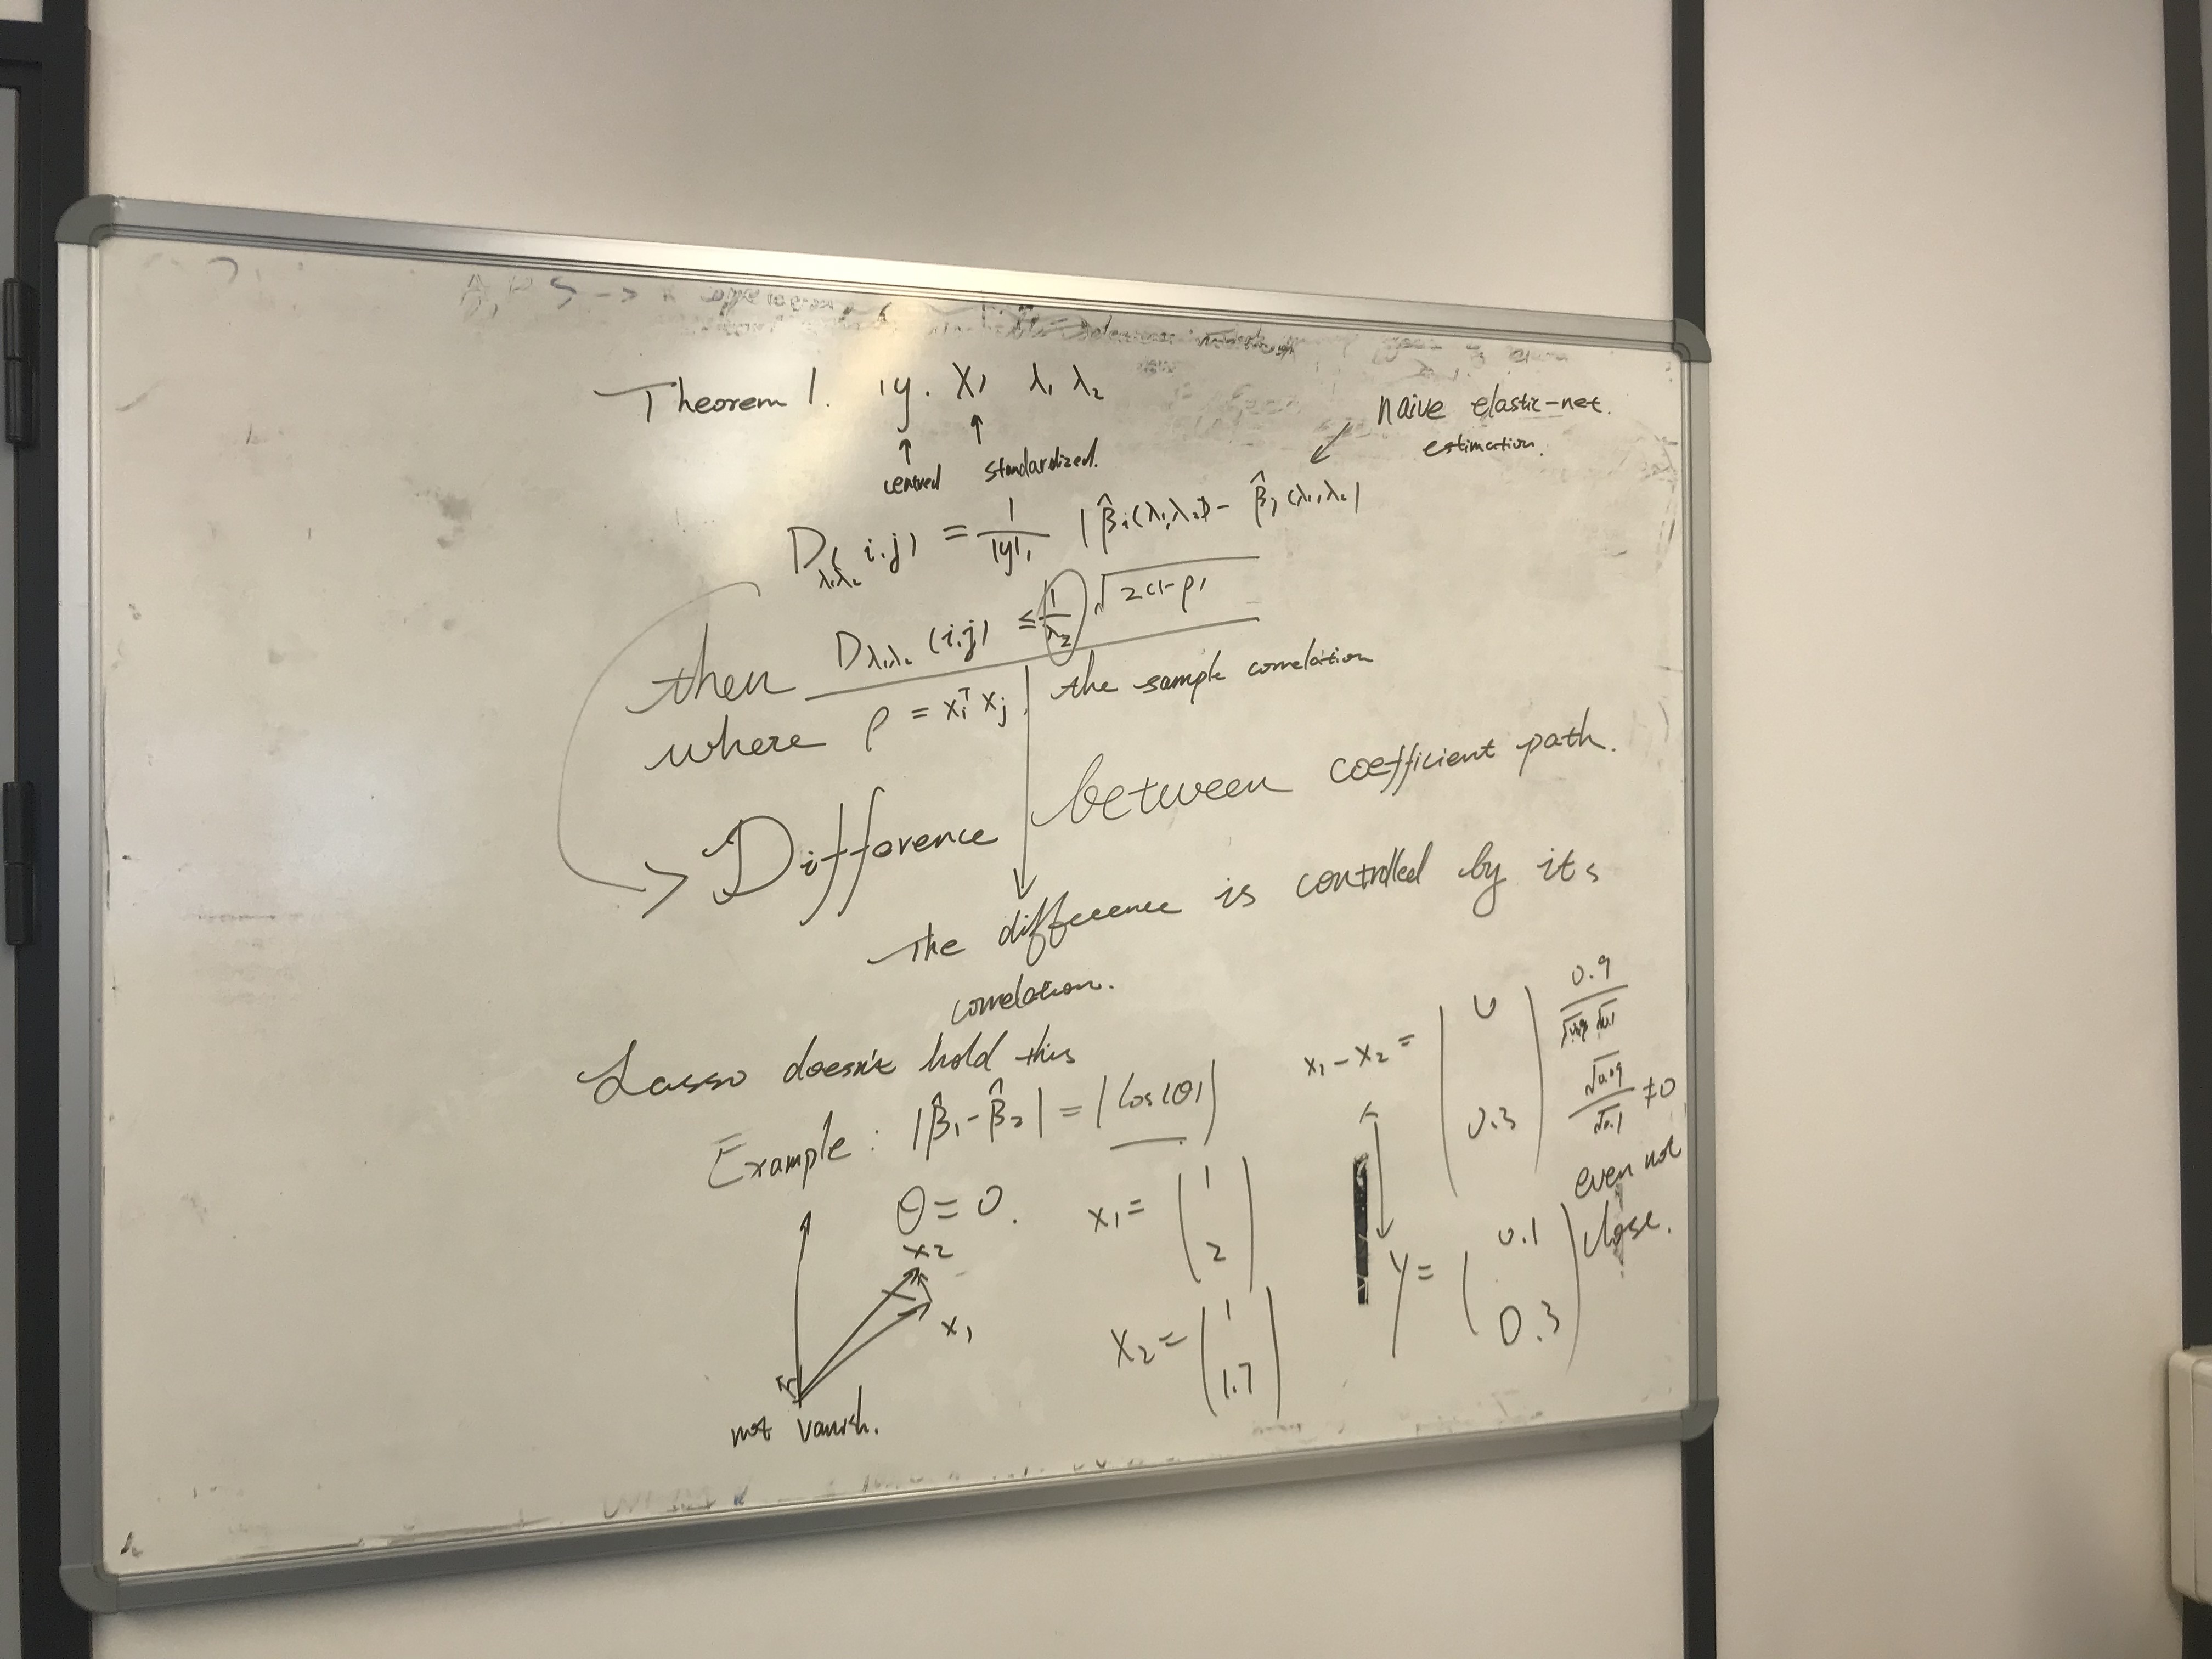 Theorem 1. (y. X) λ₁ λ₂
↑ ↑
centred standardized.
naive elastic-net.
estimation.
D_λ₁λ₂(i.j) = 1/|y|₁ |β̂ᵢ(λ₁,λ₂) - β̂ⱼ(λ₁,λ₂)|
then D_λ₁λ₂(i,j) ≤ 1/λ₂ √2(1-ρ)
where ρ = xᵢᵀxⱼ, the sample correlation
→ Difference between coefficient path.
The difference is controlled by its
correlation.
Lasso doesn't hold this
Example: |β̂₁-β̂₂| = |cos(θ)|
θ = 0.
x₂
x₁
not vanish.
x₁ = (1
2)
x₂ = (1
1.7)
x₁-x₂ = (0
0.3)
y = (0.1
0.3)
0.9
√0.1
√0.09/√0.1 ≠ 0
even not
close.